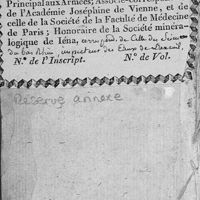 Principal aux Armées, Associé-corresp
de l'Académie Joséphine de Vienne, et
celle de la Société de la Faculté de Médecine
de Paris ; Honoraire de la Société minéra-
logique de Iéna, correspond. de Celle des Sciences
du bas Rhin, inspecteur des Eaux de
N.° de l'Inscript. N.° de Vol.
Réserve annexe